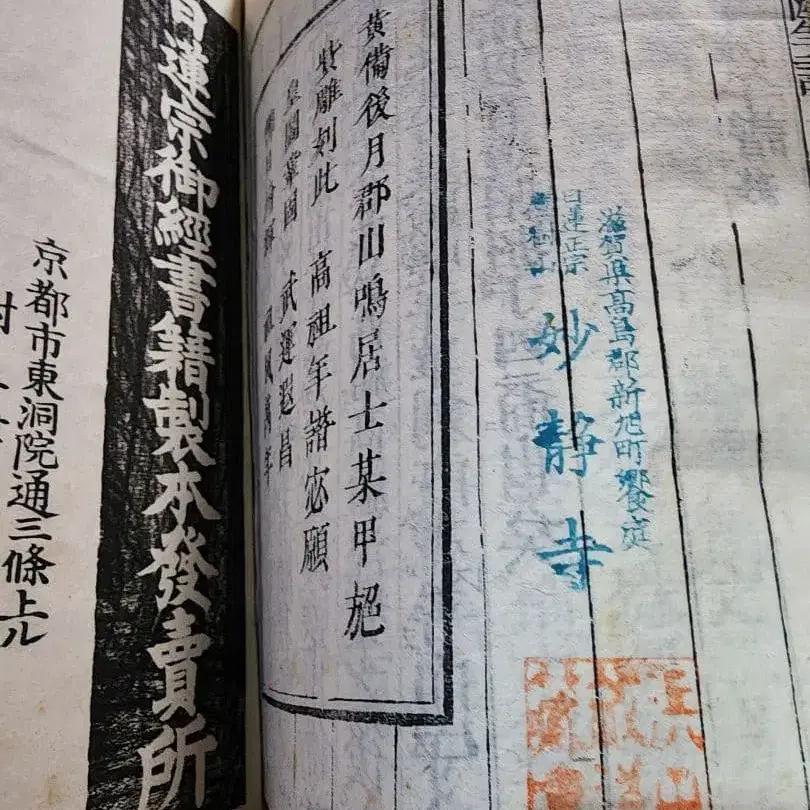 滋賀県高島郡新旭町饗庭
日蓮正宗
妙静寺
黄備後月郡山鳴居士某甲施
貲雕刻此 高祖年譜宓願
皇圖鞏固 武運遐昌
日蓮宗御經書籍製本發賣所
京都市東洞院通三條上ル